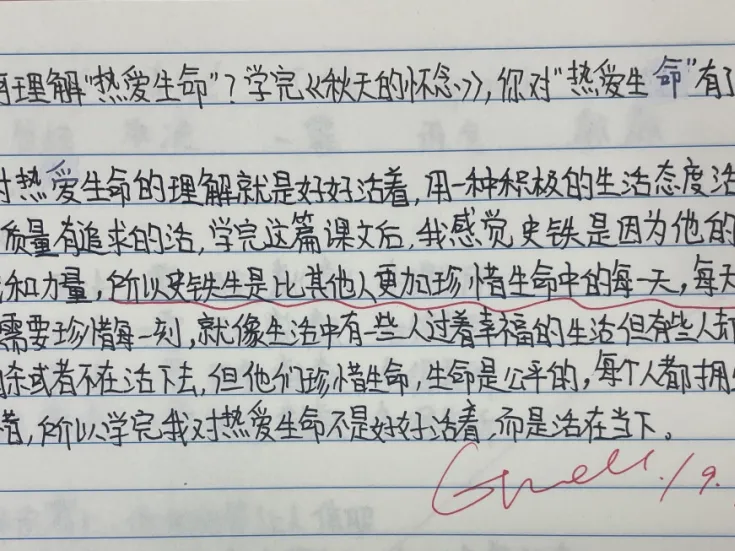 理解“热爱生命”？学完《秋天的怀念》，你对“热爱生命”有了
对热爱生命的理解就是好好活着，用一种积极的生活态度活
质量有追求的活，学完这篇课文后，我感觉史铁是因为他的
和力量，所以史铁生是比其他人更加珍惜生命中的每一天，每天
需要珍惜每一刻，就像生活中有一些人过着幸福的生活但有些人却
杀或者不在活下去，但他们珍惜生命，生命是公平的，每个人都拥
惜，所以学完我对热爱生命不是好好活着，而是活在当下。
Good./9.